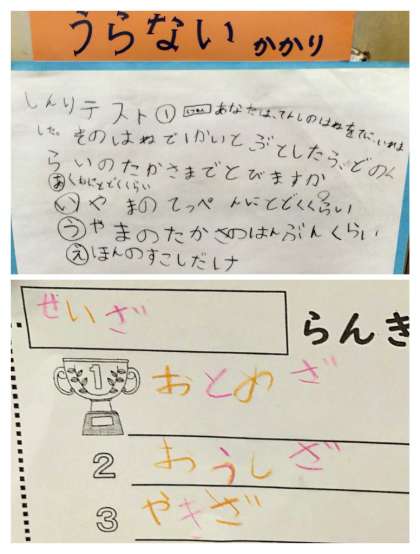 うらない かかり
しんりテスト① しつもん あなたは、てんしのはねをてにいれま
した。そのはねで1かいとぶとしたら、どのく
らいのたかさまでとびますか
あくもにとどくくらい
いやまのてっぺんにとどくくらい
うやまのたかさのはんぶんくらい
えほんのすこしだけ
せいざ らんき
1 おとめざ
2 おうしざ
3 やぎざ